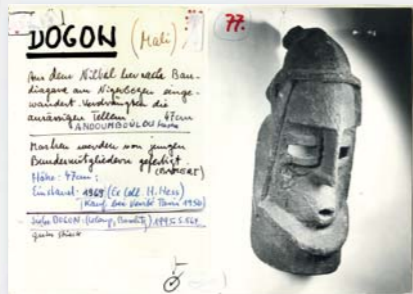 DOGON (Mali)
77.
Aus dem Niltal her nach Ban-
diagara am Nigerbogen einge-
wandert. Verdrängten die
ansässigen Tellem 47cm
ANDOUMBOULOU
Masken werden von jungen
Bundesmitgliedern gefertigt
Höhe: 47cm:
Einstand: 1969 (Ex Coll. H. Hess)
(Kauf bei 1950)
Siehe DOGON: 1995 S.
gutes Stück